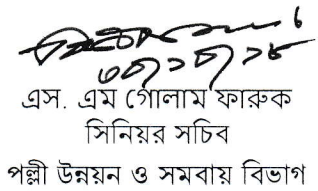 এস. এম গোলাম ফারুক
সিনিয়র সচিব
পল্লী উন্নয়ন ও সমবায় বিভাগ